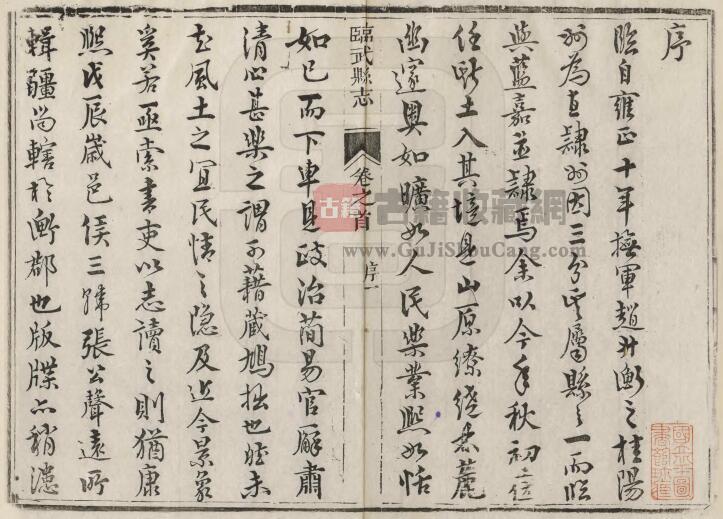 序
臨自雍正十年撫軍趙升衡之桂陽
州為直隸州因三分其屬縣之一而臨
與藍嘉並隸焉余以今年秋初
任斯土入其境見山原繚繞
幽邃奧如曠如人民樂業熙如恬
臨武縣志
卷之首
序一
如已而下車見政治簡易官廨肅
清心甚樂之謂可藉藏鳩拙也惟未
風土之宜民情之隱及近今景象
奚若亟索書吏以志讀之則猶康
熙戊辰歲邑侯三韓張公聲遠所
輯疆尚轄於衡郡也版牒亦稍
古籍
古籍收藏網
www.GuJiShouCang.com